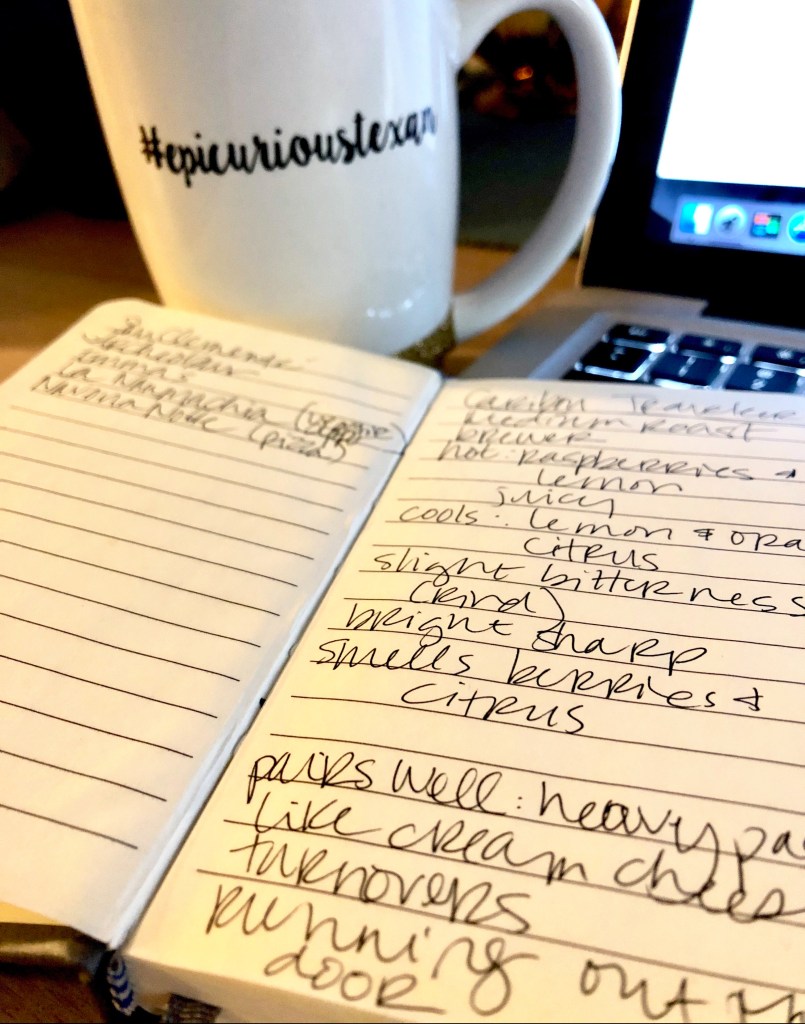 #epicurioustexan
Emma's
La Napanuchia (veggie)
Navona Notte (pizza)
Caribou Traveler
medium roast
brewer
hot: raspberries &
lemon
juicy
cools: lemon & ora
citrus
slight bitterness
(rind)
bright sharp
smells berries &
citrus
pairs well: heavy pa
like cream chees
turnovers
running out th
door